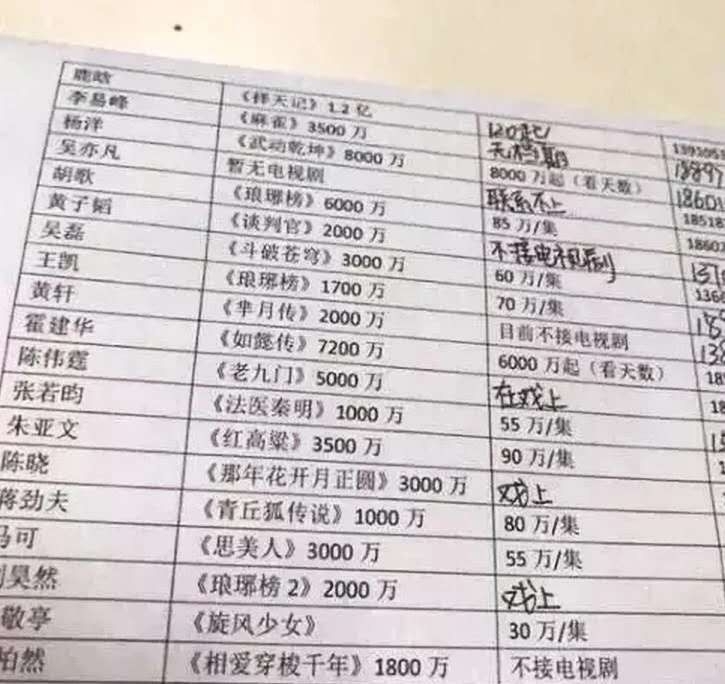 鹿晗 《择天记》1.2 亿 120起/
李易峰 《麻雀》3500 万 无档期
杨洋 《武动乾坤》8000 万 8000 万起（看天数） 18897
吴亦凡 暂无电视剧 联系不上 18601
胡歌 《琅琊榜》6000 万 85 万/集 18518
黄子韬 《谈判官》2000 万 不接电视剧 1860
吴磊 《斗破苍穹》3000 万 60 万/集
王凯 《琅琊榜》1700 万 70 万/集 136
黄轩 《芈月传》2000 万 目前不接电视剧
霍建华 《如懿传》7200 万 6000 万起（看天数）
陈伟霆 《老九门》5000 万 在戏上
张若昀 《法医秦明》1000 万 55 万/集
朱亚文 《红高粱》3500 万 90 万/集
陈晓 《那年花开月正圆》3000 万 戏上
蒋劲夫 《青丘狐传说》1000 万 80 万/集
马可 《思美人》3000 万 55 万/集
刘昊然 《琅琊榜 2》2000 万 戏上
敬亭 《旋风少女》 30 万/集
柏然 《相爱穿梭千年》1800 万 不接电视剧